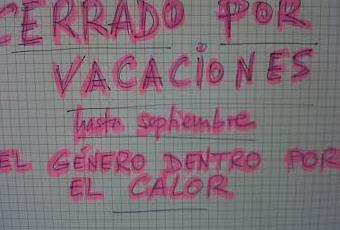 CERRADO POR
VACACIONES
hasta septiembre
EL GÉNERO DENTRO POR
EL CALOR